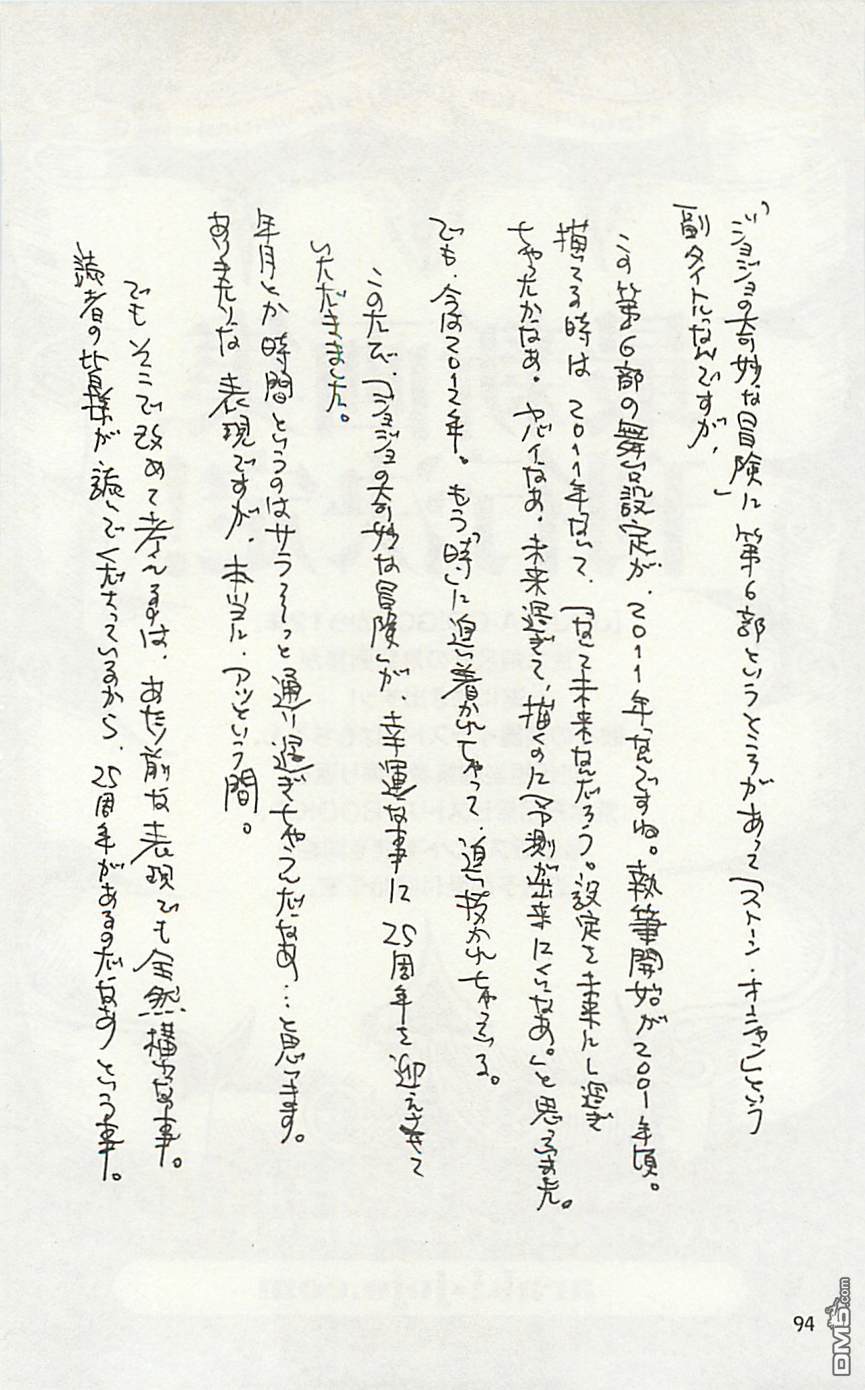 『ジョジョの奇妙な冒険』に第6部というところがあって「ストーン・オーシャン」という
副タイトルなんですが、
この第6部の舞台設定が、2011年なんですね。執筆開始が2001年頃。
描いてる時は2011年なんて、「なんて未来なんだろう。設定を未来にし過ぎ
ちゃったかなあ。ヤバイなあ。未来過ぎて、描くのに予測が出来にくいなあ。」と思ってました。
でも、今は2012年。もう「時」に追い着かれちゃって、追い抜かれちゃってる。
このたび、「ジョジョの奇妙な冒険」が、幸運な事に25周年を迎えさせて
いただきました。
年月とか時間というのはサラ〜っと通り過ぎちゃうんだなあ…と思います。
ありきたりな表現ですが、本当に、アッという間。
でもそこで改めて考えるのは、あたり前な表現でも全然構わない事。
読者の皆様が読んでくださっているから、25周年があるのだなあという事。
94
DM5.com